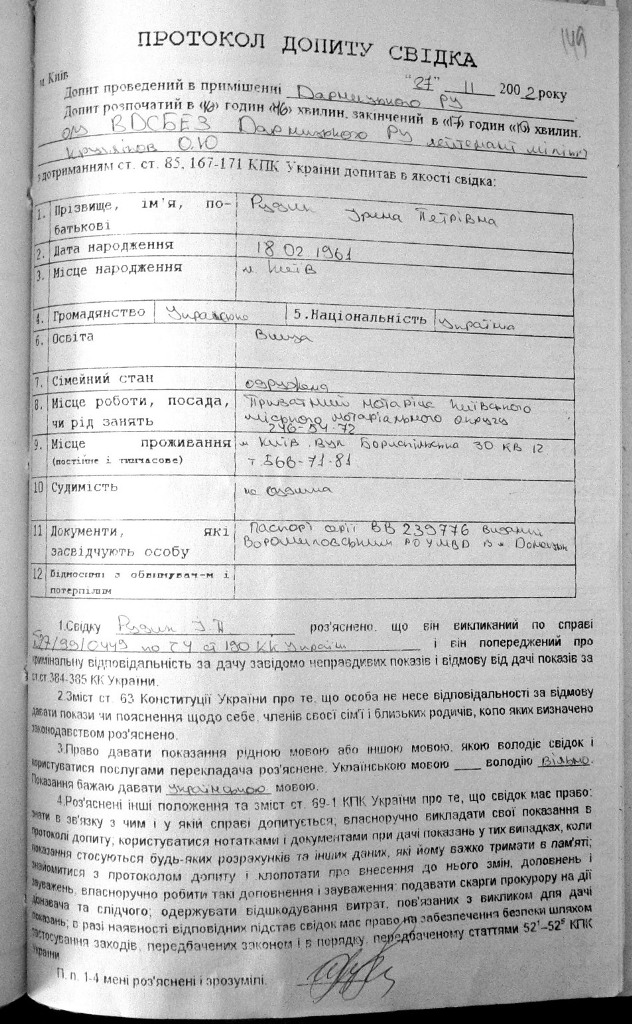 149
ПРОТОКОЛ ДОПИТУ СВІДКА
м. Київ "27" 11 2002 року
Допит проведений в приміщенні Дарницького РУ
Допит розпочатий в «16» годин «46» хвилин, закінчений в «17» годин «19» хвилин.
ВДСБЕЗ Дарницького РУ лейтенант міліції
О.Ю
з дотриманням ст. ст. 85, 167-171 КПК України допитав в якості свідка:
1. Прізвище, ім'я, по-батькові Рудик Ірина Петрівна
2. Дата народження 18 02 1961
3. Місце народження м. Київ
4. Громадянство Українське 5.Національність Українка
6. Освіта Вища
7. Сімейний стан одружена
8. Місце роботи, посада, Приватний нотаріус Київського
чи рід занять міського нотаріального округу
246-54-72
9. Місце проживання м Київ вул Бориспільська 30 кв 12
(постійне і тимчасове) т. 566-71-81
10 Судимість не судима
11 Документи, які Паспорт серії ВВ 239776 виданий
засвідчують особу Ворошиловським РВ УМВД в м Донецьк
12 Відносини з обвинувач-м і
потерпілим
1.Свідку Рудик І.П роз'яснено, що він викликаний по справі
по ч 4 ст 190 КК України і він попереджений про
кримінальну відповідальність за дачу завідомо неправдивих показів і відмову від дачі показів за
ст.ст.384-385 КК України.
2.Зміст ст. 63 Конституції України про те, що особа не несе відповідальності за відмову
давати покази чи пояснення щодо себе, членів своєї сім'ї і близьких родичів, коло яких визначено
законодавством роз'яснено.
3.Право давати показання рідною мовою або іншою мовою, якою володіє свідок і
користуватися послугами перекладача роз'яснене. Українською мовою ____ володію вільно.
Показання бажаю давати українською мовою.
4.Роз'яснені інші положення та зміст ст. 69-1 КПК України про те, що свідок має право:
знати в зв'язку з чим і у якій справі допитується, власноручно викладати свої показання в
протоколі допиту, користуватися нотатками і документами при дачі показань у тих випадках, коли
показання стосуються будь-яких розрахунків та інших даних, які йому важко тримати в пам'яті;
знайомитися з протоколом допиту і клопотати про внесення до нього змін, доповнень і
зауважень, власноручно робити такі доповнення і зауваження: подавати скарги прокурору на дії
дізнавача та слідчого; одержувати відшкодування витрат, пов'язаних з викликом для дачі
показань; в разі наявності відповідних підстав свідок має право на забезпечення безпеки шляхом
застосування заходів, передбачених законом і в порядку, передбаченому статтями 52¹–52⁵ КПК
України
П. п. 1-4 мені роз'яснені і зрозумілі.